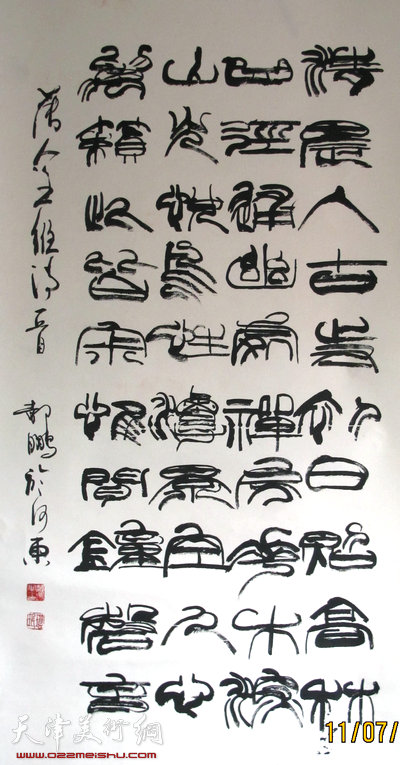 清晨入古寺初日照高林
曲徑通幽處禪房花木深
山光悅鳥性潭影空人心
萬籟此皆寂惟聞鐘磬音
唐人王維詩一首 郝鵬於河東
天津美術網
www.ozzmeishu.com
11/07/